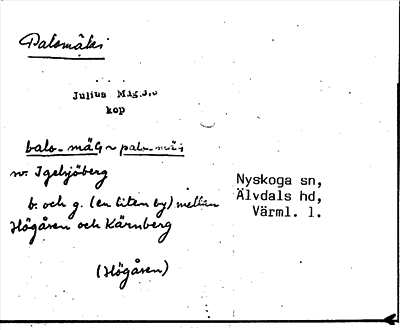 Palomäki
Julius Mäg.s.o
kop
palo-mäɢ ~ palo-mäɢ
nv. Igelsjöberg
b. och g. (en liten by) mellan
Högåsen och Kärnberg
(Högåsen)
Nyskoga sn,
Älvdals hd,
Värml. l.